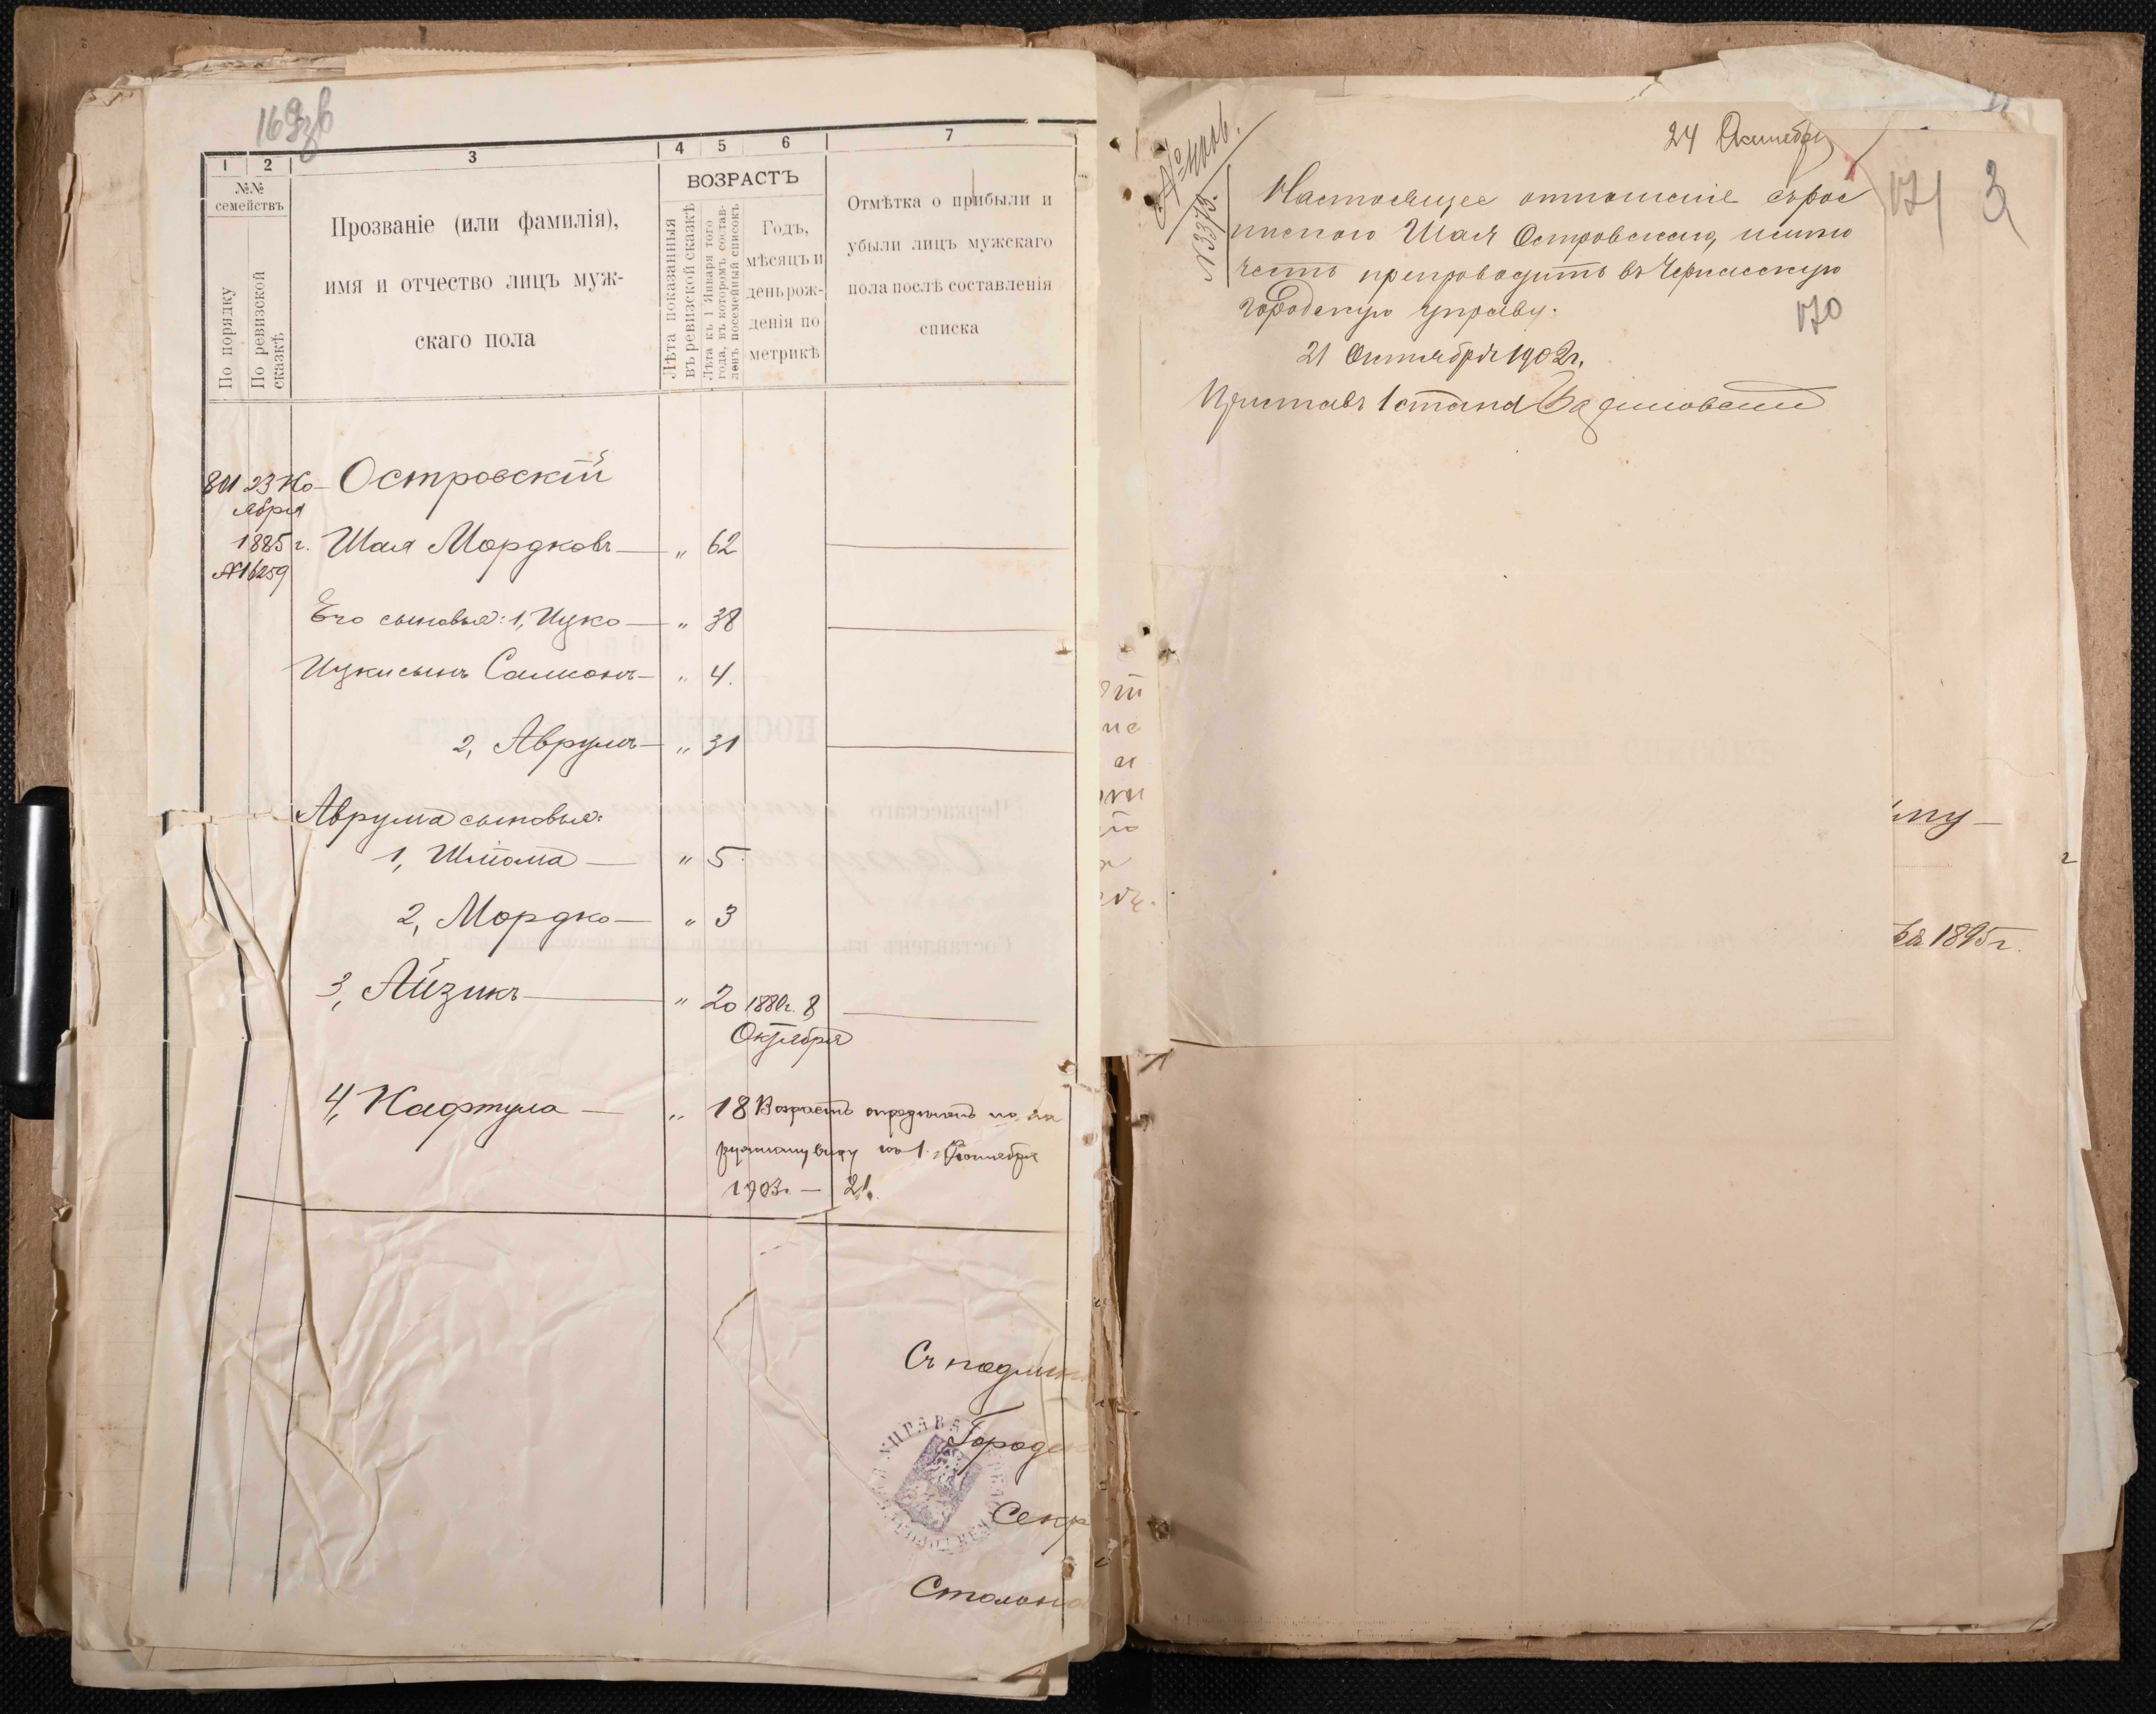 1 2 3 4 5 6 7
№№ семействъ
По порядку
По ревизской сказкѣ
Прозваніе (или фамилія),
имя и отчество лицъ муж-
скаго пола
ВОЗРАСТЪ
Лѣта показанныя
въ ревизской сказкѣ
Лѣта къ 1 Января того
года, въ которомъ состав-
ленъ посемейный списокъ
Годъ,
мѣсяцъ и
день рож-
денія по
метрикѣ
Отмѣтка о прибыли и
убыли лицъ мужскаго
пола послѣ составленія
списка
23 Но- Островскій
ября
1885 г. Шая Мордковъ — „ 62
№16259
Его сыновья: 1, Ицко — „ 38
Ицки сынъ Самсонъ — „ 4.
2, Аврумъ — „ 31
Аврума сыновья:
1, Шлёма — „ 5
2, Мордко — „ 3
3, Айзикъ — „ 20 1880г. 8
Октября
4, Нафтула — „ 18 Возрастъ опредѣленъ по на
ружному виду къ 1. Октября
1903г. — 21.
Съ подлин
Городск
Секр
Столона
24 Октября
№3373.
Настоящее отношеніе съ рос
пискою Шаи Островскаго, имѣю
честь препроводить въ Черкасскую
городскую управу.
170
21 Октября 1902г.
Приставъ 1 стана
171
2
1895г.